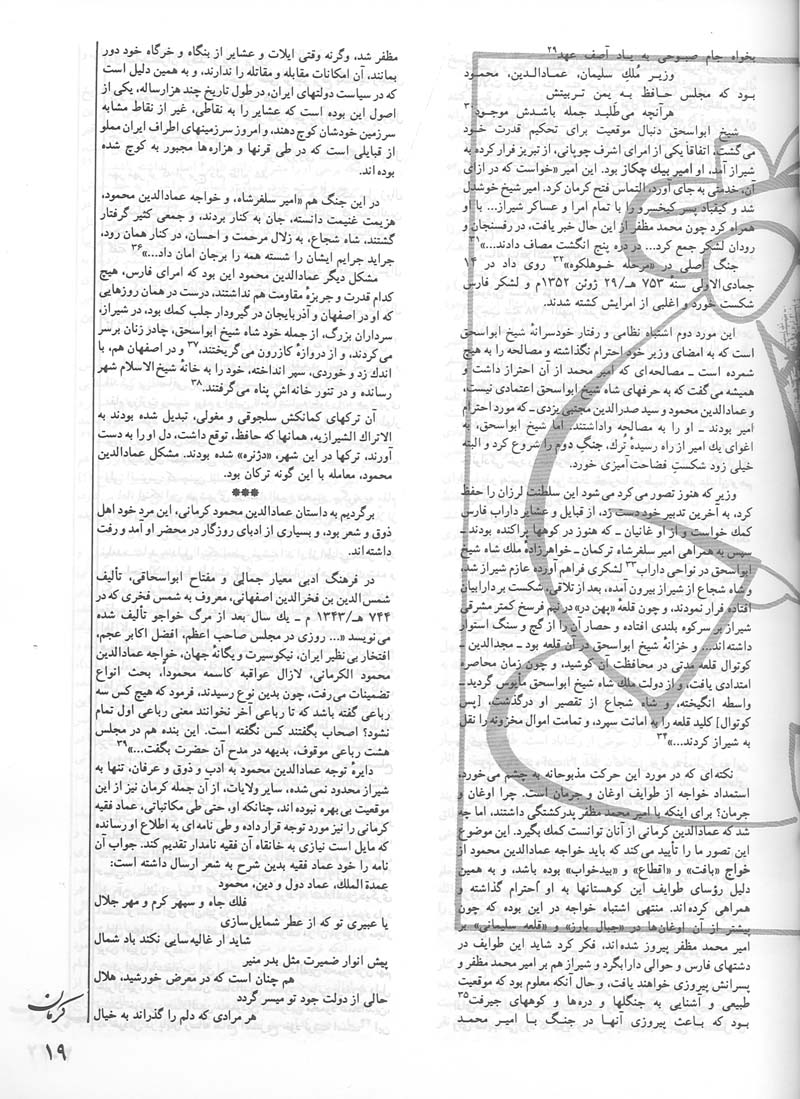 بخواه جام صبوحی به یاد آصف عهد۲۹
وزیر مُلك سلیمان، عمادالدین، محمود
بود که مجلس حافظ به یمن تربیتش
هرآنچه می‌طلبد جمله باشدش موجود۳۰
شیخ ابواسحق دنبال موقعیت برای تحکیم قدرت خود
می‌گشت. اتفاقاً یکی از امرای اشرف چوپانی، از تبریز فرار کرده به
شیراز آمد، او امیر بیك چکاز بود. این امیر «خواست که در ازای
آن، خدمتی به جای آورد، التماس فتح کرمان کرد. امیر شیخ خوشدل
شد و کیقباد پسر کیخسرو را با تمام امرا و عساکر شیراز... با او
همراه کرد چون محمد مظفر از این حال خبر یافت، در رفسنجان و
رودان لشکر جمع کرد... در دره پنج انگشت مصاف دادند...»۳۱
جنگ اصلی در «مرحله خوهلکوه»۳۲ روی داد در ۱۴
جمادی‌الاولی سنهٔ ۷۵۳ هـ/۲۹ ژوئن ۱۳۵۲م و لشکر فارس
شکست خورد و اغلبی از امرایش کشته شدند.
این مورد دوم اشتباه نظامی و رفتار خودسرانهٔ شیخ ابواسحق
است که به امضای وزیر خود احترام نگذاشته و مصالحه را به هیچ
شمرده است ـ مصالحه‌ای که امیر محمد از آن احتراز داشت و
همیشه می‌گفت که به حرفهای شاه شیخ ابواسحق اعتمادی نیست،
و عمادالدین محمود و سید صدرالدین مجتبی یزدی ـ که مورد احترام
امیر بودند ـ او را به مصالحه واداشتند. اما شیخ ابواسحق، به
اغوای یك امیر از راه رسیدهٔ تُرك، جنگِ دوم را شروع کرد و البته
خیلی زود شکستِ فضاحت‌آمیزی خورد.
وزیر که هنوز تصور می‌کرد می‌شود این سلطنت لرزان را حفظ
کرد، به آخرین تدبیر خود دست زد، از قبایل و عشایر داراب فارس
کمك خواست و از او غانیان ـ که هنوز در کوهها پراکنده بودند ـ
سپس به همراهی امیر سلفرشاه ترکمان ـ خواهرزادهٔ ملك شاه شیخ
ابواسحق در نواحی داراب۳۳ لشکری فراهم آورده عازم شیراز شد،
و شاه شجاع از شیراز بیرون آمده، بعد از تلاقی، شکست بر دارابیان
افتاده فرار نمودند، و چون قلعهٔ «پهن در» در نیم فرسخ کمتر مشرقی
شیراز بر سرکوه بلندی افتاده و حصار آن را از گچ و سنگ استوار
داشته‌اند... و خزانهٔ شیخ ابواسحق در آن قلعه بود ـ مجدالدین ـ
کوتوال قلعه مدتی در محافظت آن کوشید، و چون زمان محاصره
امتدادی یافت، و از دولت ملك شاه شیخ ابواسحق مأیوس گردید ـ
واسطه انگیخته، و شاه شجاع از تقصیر او درگذشت، [پس
کوتوال] کلید قلعه را به امانت سپرد، و تمامت اموال مخزونه را نقل
به شیراز کردند...»۳۴
نکته‌ای که در مورد این حرکت مذبوحانه به چشم می‌خورد،
استمداد خواجه از طوایف اوغان و جرمان است. چرا اوغان و
جرمان؟ برای اینکه با امیر محمد مظفر پدرکشتگی داشتند، اما چه
شد که عمادالدین کرمانی از آنان توانست کمك بگیرد. این موضوع
این تصور ما را تأیید می‌کند که باید خواجه عمادالدین محمود از
خواج «بافت» و «اقطاع» و «بیدخواب» بوده باشد، و به همین
دلیل رؤسای طوایف این کوهستانها به او احترام گذاشته و
همراهی کرده‌اند. منتهی اشتباه خواجه در این بوده که چون
پیشتر از آن اوغان‌ها در «جبال بارز» و «قلعه سلیمانی» بر
امیر محمد مظفر پیروز شده‌اند، فکر کرد شاید این طوایف در
دشتهای فارس و حوالی دارابگرد و شیراز هم بر امیر محمد مظفر و
پسرانش پیروزی خواهند یافت، و حال آنکه معلوم بود که موقعیت
طبیعی و آشنایی به جنگلها و دره‌ها و کوههای جیرفت۳۵
بود که باعث پیروزی آنها در جنگ با امیر محمد
مظفر شد، وگرنه وقتی ایلات و عشایر از بنگاه و خرگاه خود دور
بمانند، آن امکانات مقابله و مقاتله را ندارند، و به همین دلیل است
که در سیاست دولتهای ایران، در طول تاریخ چند هزارساله، یکی از
اصول این بوده است که عشایر را به نقاطی، غیر از نقاط مشابه
سرزمین خودشان کوچ دهند، و امروز سرزمینهای اطراف ایران مملو
از قبایلی است که در طی قرنها و هزاره‌ها مجبور به کوچ شده
بوده‌اند.
در این جنگ هم «امیر سلفرشاه، و خواجه عمادالدین محمود،
هزیمت غنیمت دانسته، جان به کنار بردند، و جمعی کثیر گرفتار
گشتند، شاه شجاع، به زلال مرحمت و احسان، در کنار همان رود،
جراید جرایم ایشان را شسته همه را برجان امان داد...»۳۶
مشکل دیگر عمادالدین محمود این بود که امرای فارس، هیچ
کدام قدرت و جربزهٔ مقاومت هم نداشتند، درست در همان روزهایی
که او در اصفهان و آذربایجان در گیرودار جلب کمك بود، در شیراز،
سرداران بزرگ، از جمله خود شاه شیخ ابواسحق، چادر زنان برسر
می‌کردند، و از دروازهٔ کازرون می‌گریختند،۳۷ و در اصفهان هم، با
اندك زد و خوردی، سپر انداخته، خود را به خانهٔ شیخ‌الاسلام شهر
رسانده و در تنور خانه‌اش پناه می‌گرفتند.۳۸
آن ترکهای کمانکش سلجوقی و مغولی، تبدیل شده بودند به
الاتراك الشیرازیه، همانها که حافظ، توقع داشت، دل او را به دست
آورند، ترکها در این شهر، «دژنره» شده بودند. مشکل عمادالدین
محمود، معامله با این گونه ترکان بود.
***
برگردیم به داستان عمادالدین محمود کرمانی، این مرد خود اهل
ذوق و شعر بود، و بسیاری از ادبای روزگار در محضر او آمد و رفت
داشته‌اند.
در فرهنگ ادبی معیار جمالی و مفتاح ابواسحاقی، تألیف
شمس‌الدین بن فخرالدین اصفهانی، معروف به شمس فخری که در
۷۴۴ هـ/۱۳۴۳ م ـ یك سال بعد از مرگ خواجو تألیف شده
می‌نویسد «... روزی در مجلس صاحب اعظم، افضل اکابر عجم،
افتخار بی نظیر ایران، نیکوسیرت و یگانهٔ جهان، خواجه عمادالدین
محمود الکرمانی، لازال عواقبه کاسمه محموداً، بحث انواع
تضمینات می‌رفت، چون بدین نوع رسیدند، فرمود که هیچ کس سه
رباعی گفته باشد که تا رباعی آخر نخوانند معنی رباعی اول تمام
نشود؟ اصحاب بگفتند کس نگفته است. این بنده هم در مجلس
هشت رباعی موقوف، بدیهه در مدح آن حضرت بگفت...»۳۹
دایرهٔ توجه عمادالدین محمود به ادب و ذوق و عرفان، تنها به
شیراز محدود نمی شده، سایر ولایات، از آن جمله کرمان نیز از این
موقعیت بی بهره نبوده‌اند، چنانکه او، حتی طی مکاتباتی، عماد فقیه
کرمانی را نیز مورد توجه قرار داده و طی نامه‌ای به اطلاع او رسانده
که مایل است نیازی به خانقاه آن فقیه نامدار تقدیم کند. جواب آن
نامه را خود عماد فقیه بدین شرح به شعر ارسال داشته است:
عمدة الملك، عماد دول و دین، محمود
فلك جاه و سپهر کرم و مهر جلال
یا عبیری تو که از عطر شمایل‌سازی
شاید ار غالیه‌سایی نکند باد شمال
پیش انوار ضمیرت مثل بدر منیر
هم چنان است که در معرض خورشید، هلال
حالی از دولت جود تو میسر گردد
هر مرادی که دلم را گذراند به خیال
کرمان
۱۹